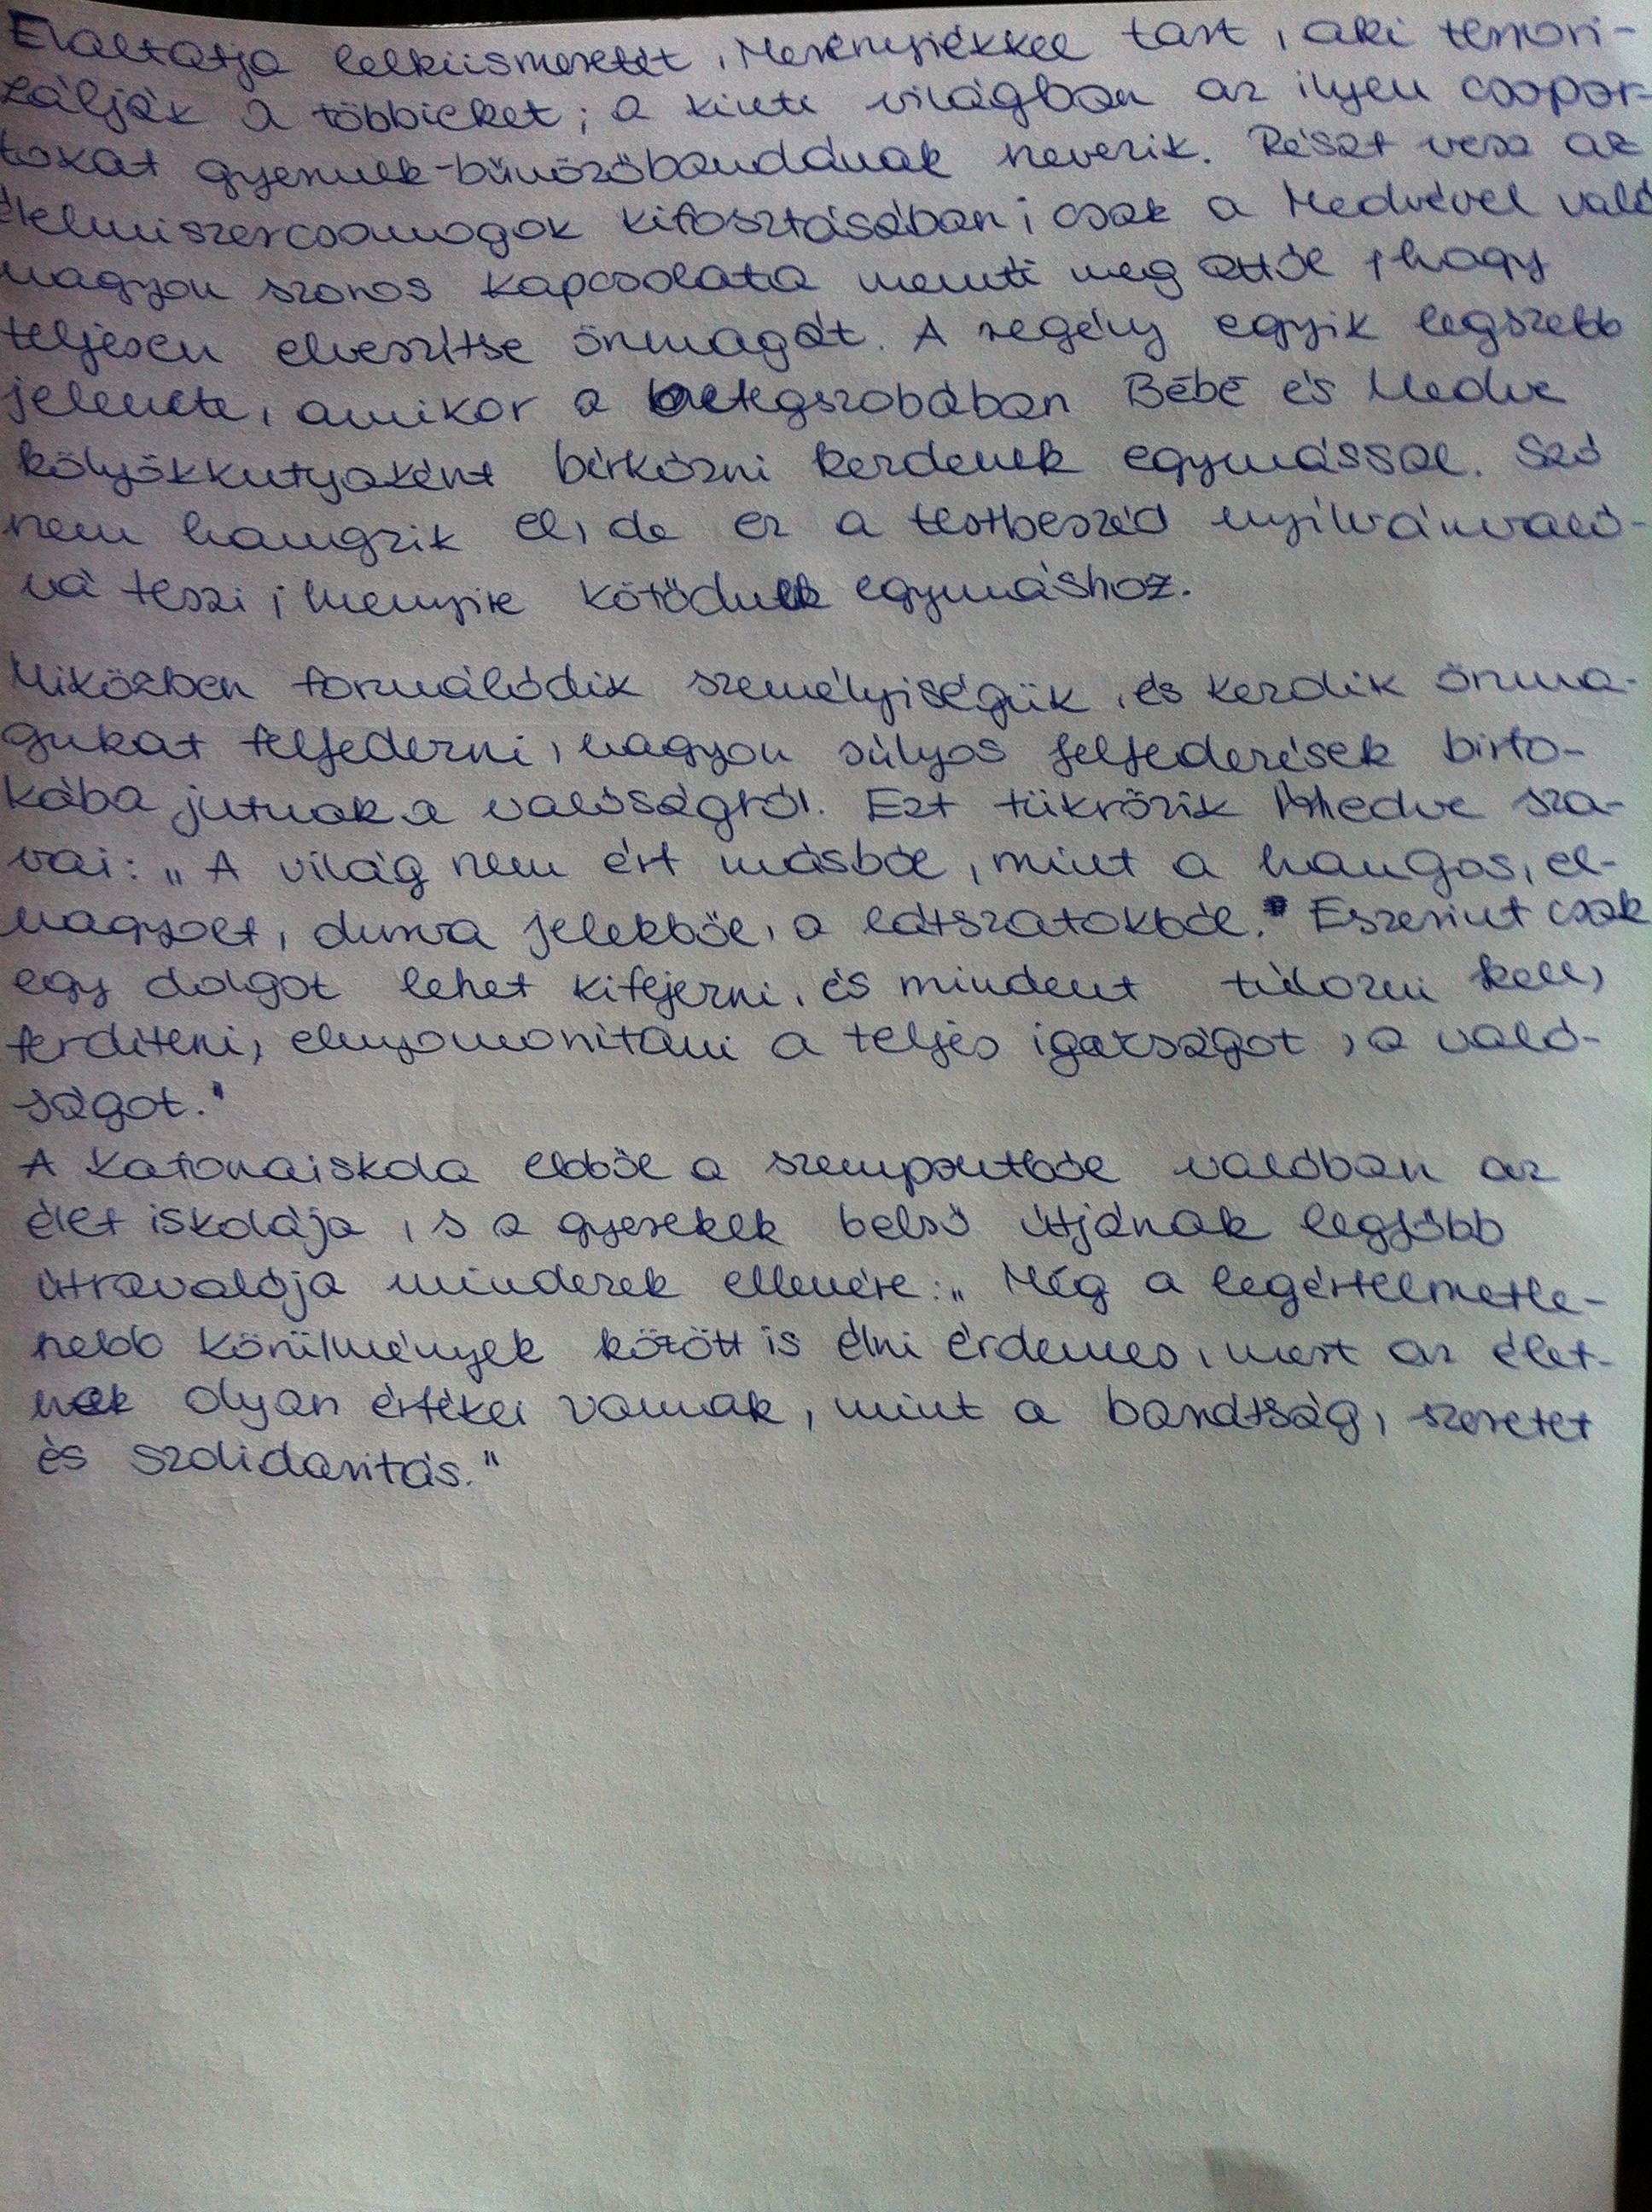 Elaltatja lelkiismeretét, Merényiékkel tart, aki terrori-
zálják a többieket; a kinti világban az ilyen csopor-
tokat gyermek-bűnözőbandának nevezik. Részt vesz az
élelmiszercsomagok kifosztásában; csak a Medvével való
nagyon szoros kapcsolata menti meg attól, hogy
teljesen elveszítse önmagát. A regény egyik legszebb
jelenete, amikor a betegszobában Bébé és Medve
kölyökkutyaként birkózni kezdenek egymással. Szó
nem hangzik el, de ez a testbeszéd nyilvánvaló-
vá teszi, mennyire kötődnek egymáshoz.
Miközben formálódik személyiségük, és kezdik önma-
gukat felfedezni, nagyon súlyos felfedezések birto-
kába jutnak a valóságról. Ezt tükrözik Medve sza-
vai: „A világ nem ért másból, mint a hangos, el-
nagyolt, durva jelekből, a látszatokból. Eszerint csak
egy dolgot lehet kifejezni, és mindent túlozni kell,
ferdíteni, elnyomorítani a teljes igazságot, a való-
ságot."
A katonaiskola ebből a szempontból valóban az
élet iskolája, s a gyerekek belső útjának legfőbb
útravalója mindezek ellenére: „Még a legértelmetle-
nebb körülmények között is élni érdemes, mert az élet-
nek olyan értékei vannak, mint a barátság, szeretet
és szolidaritás."